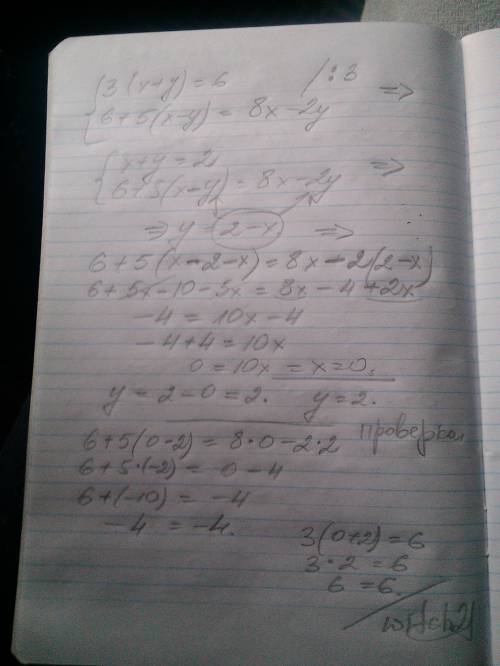 { 3(x+y) = 6 /:3 =>
6+5(x-y) = 8x-2y
{ x+y = 2 =>
6+5(x-y) = 8x-2y
=> y = 2-x =>
6+5(x-2-x) = 8x-2(2-x)
6+5x-10-5x = 8x-4+2x
-4 = 10x-4
-4+4 = 10x
0 = 10x = x=0.
y = 2-0 = 2. y=2.
проверка
6+5(0-2) = 8·0-2·2
6+5·(-2) = 0-4
6+(-10) = -4
-4 = -4.
3(0+2) = 6
3·2 = 6
6 = 6.